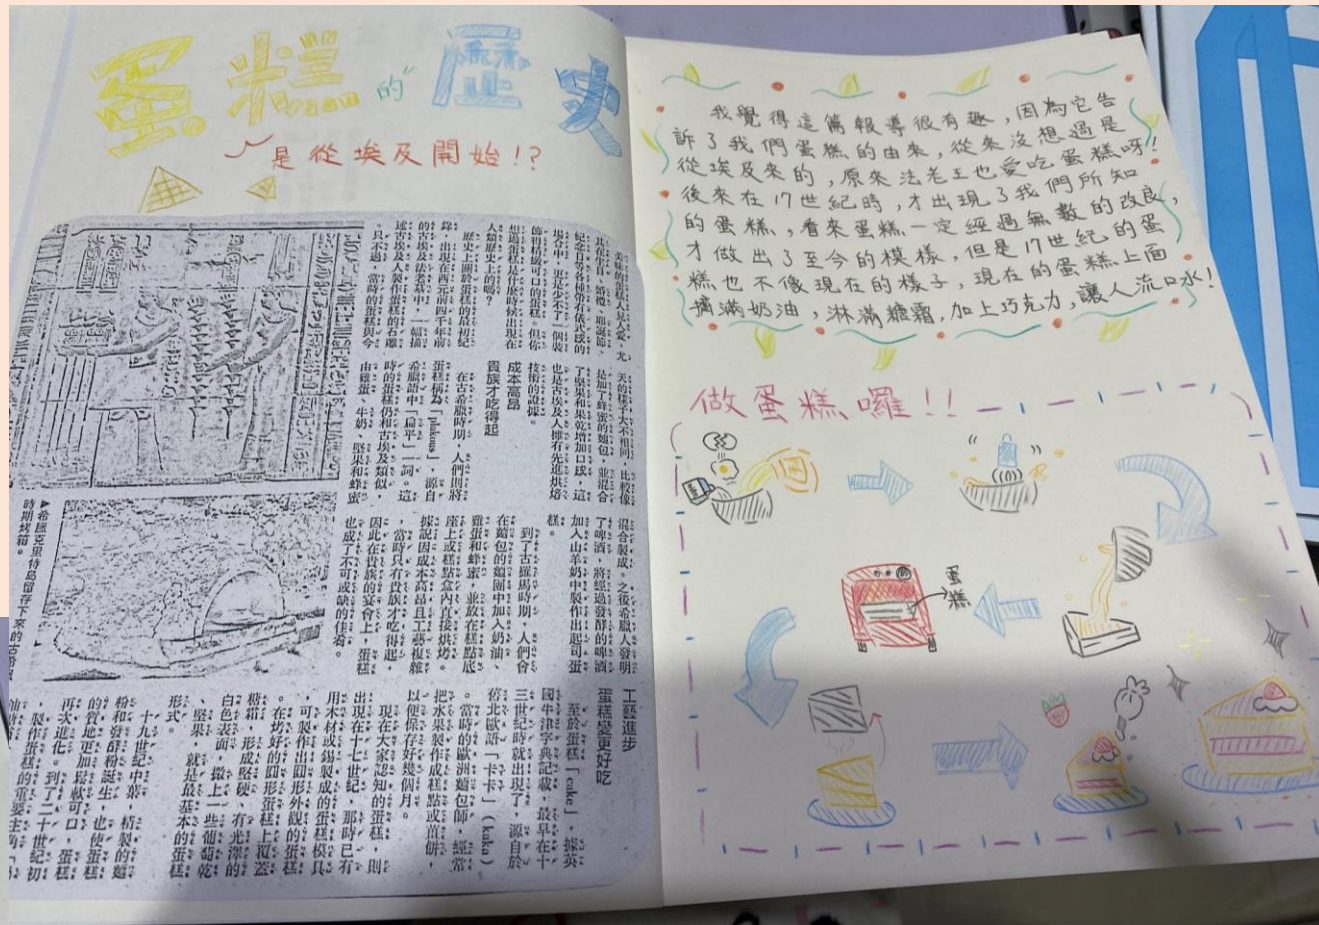 蛋糕的歷史
是從埃及開始!?
美味的蛋糕人見人愛,尤
其在生日、婚禮、耶誕節、
紀念日等各種帶有儀式感的
場合中,更是少不了一個裝
飾得精緻可口的蛋糕。但你
想過蛋糕是什麼時候出現在
人類歷史上的嗎?
歷史上關於蛋糕的最初紀
錄,出現在西元前四千年前
的古埃及法老墓中,一幅描
述古埃及人製作蛋糕的石雕
。只不過,當時的蛋糕與今
天的樣子大不相同,比較像
是加了蜂蜜的麵包,並混合
了堅果和果乾增加口感,這
也是古埃及人擁有先進烘焙
技術的證據。
成本高昂
貴族才吃得起
在古希臘時期,人們則將
蛋糕稱為「plakous」,源自
希臘語中「扁平」一詞。這
時的蛋糕仍和古埃及類似,
由雞蛋、牛奶、堅果和蜂蜜
混合製成。之後希臘人發明
了啤酒,將經過發酵的啤酒
加入山羊奶中製作出起司蛋
糕。
到了古羅馬時期,人們會
在麵包的麵團中加入奶油、
雞蛋和蜂蜜,並放在糕點底
座上或糕點盒內直接烘烤。
據說因成本高昂且工藝複雜
,當時只有貴族才吃得起,
因此在貴族的宴會上,蛋糕
也成了不可或缺的佳肴。
▶希臘克里特島留存下來的古希臘
時期烤箱。
工藝進步
蛋糕變更好吃
至於蛋糕「cake」,據英
國牛津字典記載,最早在十
三世紀時就出現了,源自於
舊北歐語「卡卡」(kaka)
。當時的歐洲麵包師,經常
把水果製作成糕點或苗餅,
以便保存好幾個月。
現在大家認知的蛋糕,則
出現在十七世紀,那時已有
用木材或錫製成的蛋糕模具
,可製作出圓形外觀的蛋糕
。在烤好的圓形蛋糕上覆蓋
糖霜,形成堅硬、有光澤的
白色表面,撒上一些葡萄乾
、堅果,就是最基本的蛋糕
形式。
十九世紀中葉,精製的麵
粉和發酵粉誕生,也使蛋糕
的質地更加鬆軟可口,蛋糕
再次進化。到了二十世紀初
,製作蛋糕的重要主角
我覺得這篇報導很有趣,因為它告
訴了我們蛋糕的由來,從來沒想過是
從埃及來的,原來法老王也愛吃蛋糕呀!
後來在17世紀時,才出現了我們所知
的蛋糕,看來蛋糕一定經過無數的改良,
才做出了至今的模樣,但是17世紀的蛋
糕也不像現在的樣子,現在的蛋糕上面
擠滿奶油,淋滿糖霜,加上巧克力,讓人流口水!
做蛋糕囉!!
蛋糕